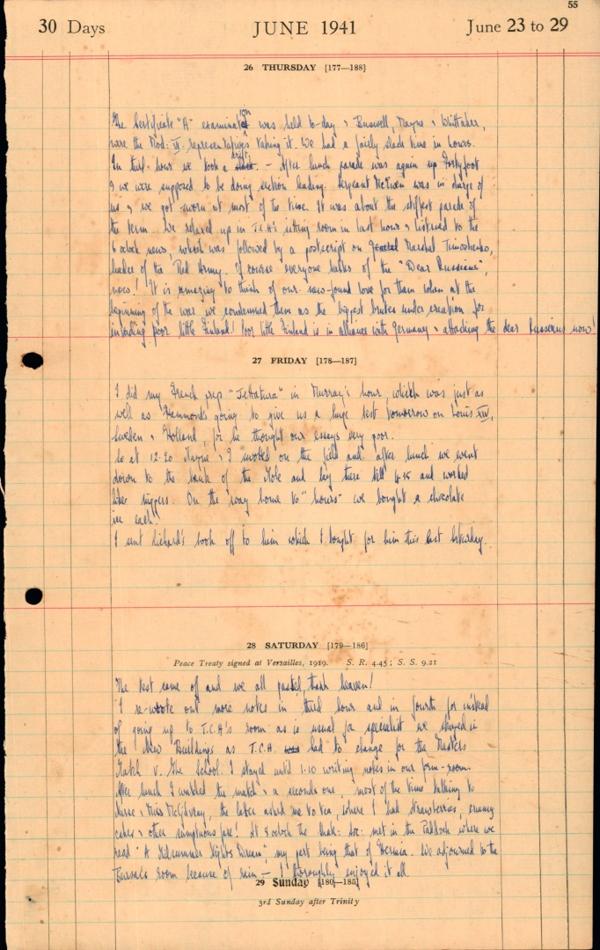 55
30 Days JUNE 1941 June 23 to 29
26 THURSDAY [177—188]
The Certificate "A" examination was held to-day & Buswell, Mayne & Whittaker,
were the Mod: VI representatives taking it. We had a fairly slack time in hours.
In third hour we took a . – After lunch parade was again up Fortyfoot
& we were supposed to be doing section leading. Sergeant was in charge of
us & we got sworn at most of the time. It was about the stiffest parade of
the term. We relaxed up in T.C.H's sitting room in last hour & listened to the
6 o'clock news, which was followed by a postscript on General Marshal Timoshenko,
leader of the Red Army. Of course everyone talks of the "Dear Russians",
now! It is amazing to think of our new-found love for them when at the
beginning of the war we condemned them as the biggest brutes under creation for
invading poor little Finland! Poor little Finland is in alliance with Germany & attacking the dear Russians now!
27 FRIDAY [178—187]
I did my French prep "Jettatura" in Murray's hour, which was just as
well as Hammond's going to give us a huge test tomorrow on Louis XIV,
Sweden & Holland, for he thought our essays very poor.
So at 12.20 Mayne & I on the field and after lunch we went
down to the bank of the Mole and lay there till 4.15 and worked
like niggers. On the way home to "hours" we bought a chocolate
ice each.
I sent Richard's book off to him which I bought for him this last Saturday.
28 SATURDAY [179—186]
Peace Treaty signed at Versailles, 1919. S. R. 4.45; S. S. 9.21
The test came of and we all passed, thank heaven!
I re-wrote out more notes in third hour and in fourth for instead
of going up to T.C.H's room as is usual for specialist we stayed in
the New Buildings as T.C.H. had to change for the Masters
Match v. the School. I stayed until 1.10 writing notes in our form-room.
After lunch I watched the match & a seconds one, most of the time talking to
& Miss McGilvray, the later asked me to tea, where I had strawberries, creamy
cakes & other sumptuous fare! At 8 o'clock the Shak: Soc: met in the Paddock where we
read "A Midsummer Nights Dream" my part being that of Hermia. We adjourned to the
room because of rain – I thoroughly enjoyed it all.
29 Sunday [180—185]
3rd Sunday after Trinity